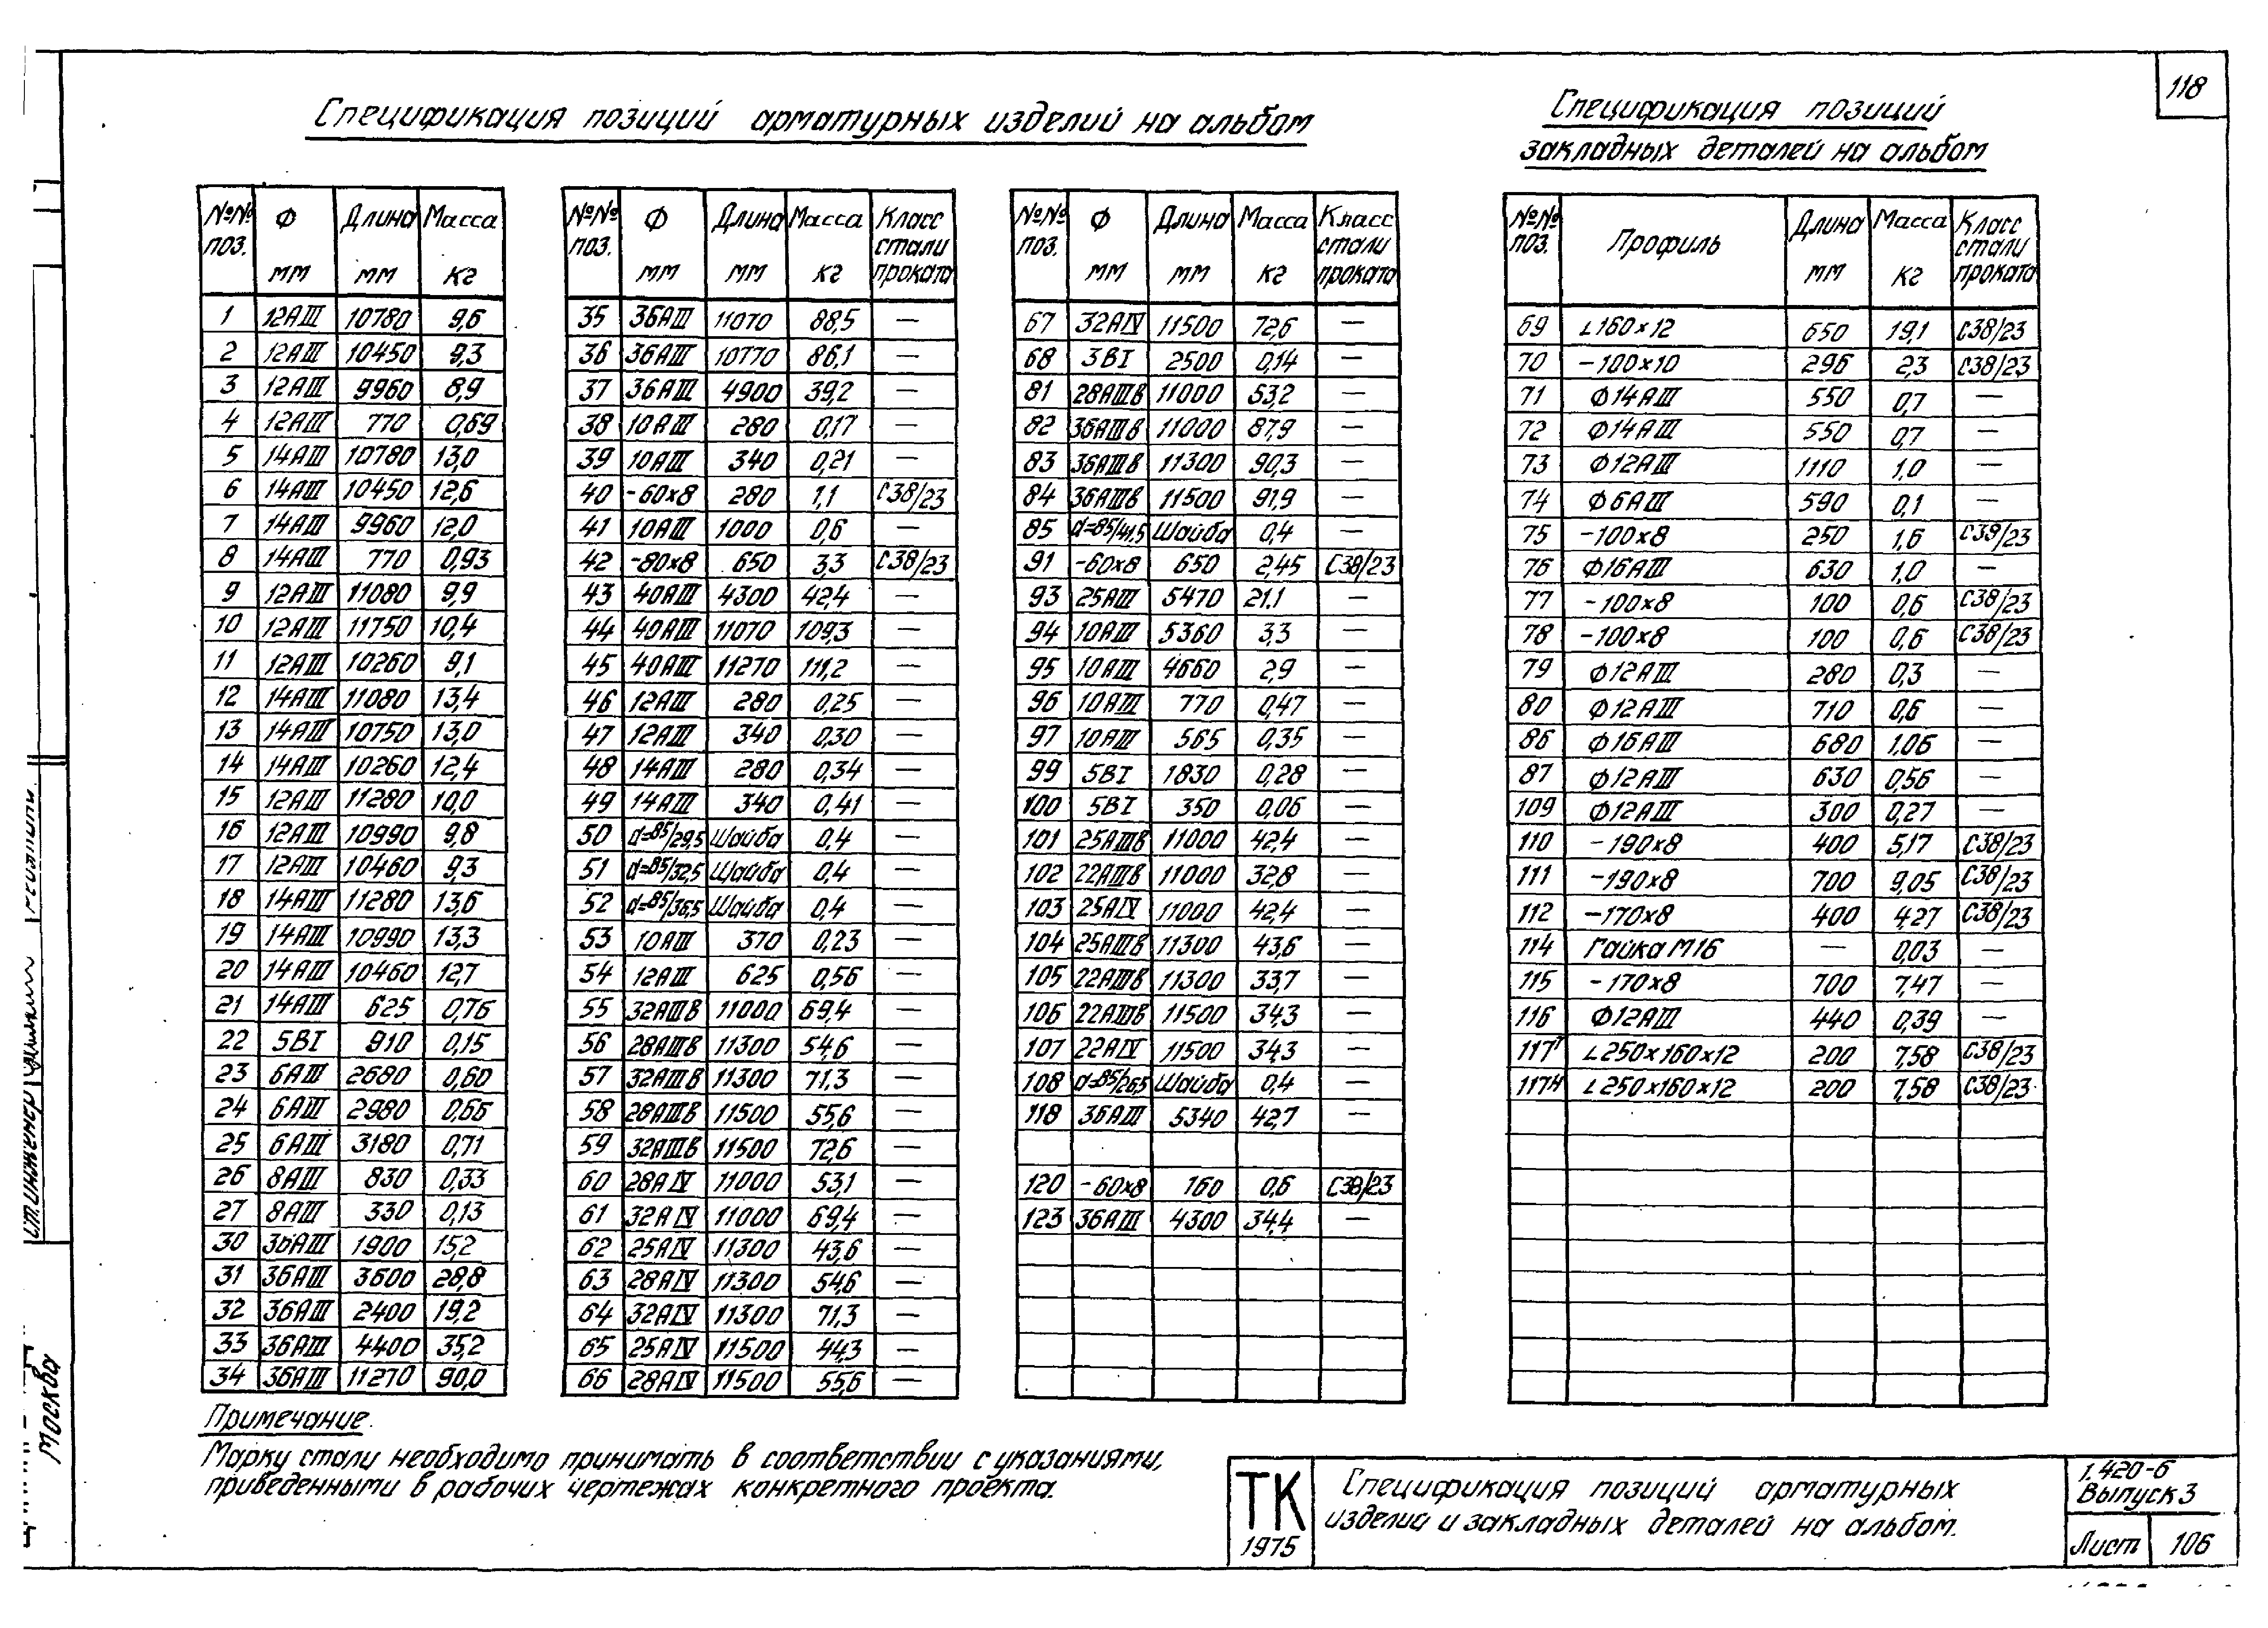 118
Спецификация позиций арматурных изделий на альбом
Спецификация позиций
закладных деталей на альбом
№№ поз. Ф мм Длина мм Масса кг
1 12АIII 10780 9,6
2 12АIII 10450 9,3
3 12АIII 9960 8,9
4 12АIII 770 0,69
5 14АIII 10780 13,0
6 14АIII 10450 12,6
7 14АIII 9960 12,0
8 14АIII 770 0,93
9 12АIII 11080 9,9
10 12АIII 11750 10,4
11 12АIII 10260 9,1
12 14АIII 11080 13,4
13 14АIII 10750 13,0
14 14АIII 10260 12,4
15 12АIII 11280 10,0
16 12АIII 10990 9,8
17 12АIII 10460 9,3
18 14АIII 11280 13,6
19 14АIII 10990 13,3
20 14АIII 10460 12,7
21 14АIII 625 0,76
22 5ВI 910 0,15
23 6АIII 2680 0,60
24 6АIII 2980 0,66
25 6АIII 3180 0,71
26 8АIII 830 0,33
27 8АIII 330 0,13
30 36АIII 1900 15,2
31 36АIII 3600 28,8
32 36АIII 2400 19,2
33 36АIII 4400 35,2
34 36АIII 11270 90,0
№№ поз. Ф мм Длина мм Масса кг Класс стали проката
35 36АIII 11070 88,5 —
36 36АIII 10770 86,1 —
37 36АIII 4900 39,2 —
38 10АIII 280 0,17 —
39 10АIII 340 0,21 —
40 -60х8 280 1,1 С38/23
41 10АIII 1000 0,6 —
42 -80х8 650 3,3 С38/23
43 40АIII 4300 42,4 —
44 40АIII 11070 109,3 —
45 40АIII 11270 111,2 —
46 12АIII 280 0,25 —
47 12АIII 340 0,30 —
48 14АIII 280 0,34 —
49 14АIII 340 0,41 —
50 d=85/29,5 Шайба 0,4 —
51 d=85/32,5 Шайба 0,4 —
52 d=85/36,5 Шайба 0,4 —
53 10АIII 370 0,23 —
54 12АIII 625 0,56 —
55 32АIIIв 11000 69,4 —
56 28АIIIв 11300 54,6 —
57 32АIIIв 11300 71,3 —
58 28АIIIв 11500 55,6 —
59 32АIIIв 11500 72,6 —
60 28АIV 11000 53,1 —
61 32АIV 11000 69,4 —
62 25АIV 11300 43,6 —
63 28АIV 11300 54,6 —
64 32АIV 11300 71,3 —
65 25АIV 11500 44,3 —
66 28АIV 11500 55,6 —
№№ поз. Ф мм Длина мм Масса кг Класс стали проката
67 32АIV 11500 72,6 —
68 3ВI 2500 0,14 —
81 28АIIIв 11000 53,2 —
82 36АIIIв 11000 87,9 —
83 36АIIIв 11300 90,3 —
84 36АIIIв 11500 91,9 —
85 d=85/41,5 Шайба 0,4 —
91 -60х8 650 2,45 С38/23
93 25АIII 5470 21.1 —
94 10АIII 5360 3,3 —
95 10АIII 4660 2,9 —
96 10АIII 770 0,47 —
97 10АIII 565 0,35 —
99 5ВI 1830 0,28 —
100 5ВI 350 0,06 —
101 25АIIIв 11000 42,4 —
102 22АIIIв 11000 32,8 —
103 25АIV 11000 42,4 —
104 25АIIIв 11300 43,6 —
105 22АIIIв 11300 33,7 —
106 22АIIIв 11500 34,3 —
107 22АIV 11500 34,3 —
108 d=85/26,5 Шайба 0,4 —
118 36АIII 5340 42,7 —
120 -60х8 160 0,6 С38/23
123 36АIII 4300 34,4 —
№№ поз. Профиль Длина мм Масса кг Класс стали проката
69 ∟160×12 650 19,1 С38/23
70 -100×10 296 2,3 С38/23
71 Ф14АIII 550 0,7 —
72 Ф14АIII 550 0,7 —
73 Ф12АIII 1110 1,0 —
74 Ф6АIII 590 0,1 —
75 -100×8 250 1,6 С38/23
76 Ф16АIII 630 1,0 —
77 -100×8 100 0,6 С38/23
78 -100×8 100 0,6 С38/23
79 Ф12АIII 280 0,3 —
80 Ф12АIII 710 0,6 —
86 Ф16АIII 680 1.06 —
87 Ф12АIII 630 0,56 —
109 Ф12АIII 300 0,27 —
110 -190×8 400 5,17 С38/23
111 -190×8 700 9,05 С38/23
112 -170×8 400 4,27 С38/23
114 Гайка М16 — 0,03 —
115 -170×8 700 7,47 —
116 Ф12АIII 440 0,39 —
117т ∟250×160×12 200 7,58 С38/23
117н ∟250×160×12 200 7,58 С38/23
Примечание.
Марку стали необходимо принимать в соответствии с указаниями,
приведенными в рабочих чертежах конкретного проекта.
ТК
1975
Спецификация позиций арматурных
изделий и закладных деталей на альбом.
1.420-6
Выпуск 3
Лист 106
Ст.инженер
Москва